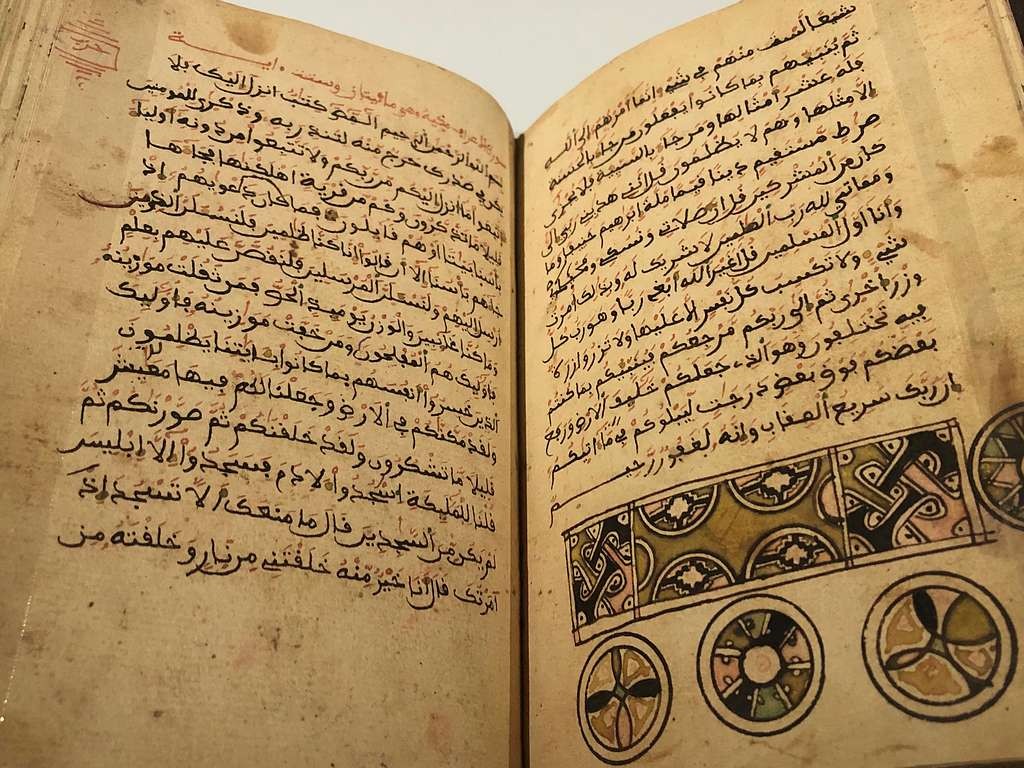 شيعا لست منهم في شيء انما امرهم الى الله
ثم ينبئهم بما كانوا يفعلون من جاء بالحسنة
فله عشر امثالها ومن جاء بالسيئة فلا يجزى
الا مثلها وهم لا يظلمون قل انني هديني ربي الى
صرط مستقيم دينا قيما ملة ابرهيم حنيفا وما
كان من المشركين قل ان صلاتي ونسكي ومحياي
ومماتي لله رب العلمين لا شريك له وبذلك امرت
وانا اول المسلمين قل اغير الله ابغي ربا وهو رب كل
شيء ولا تكسب كل نفس الا عليها ولا تزر وازرة
وزر اخرى ثم الى ربكم مرجعكم فينبئكم بما كنتم
فيه تختلفون وهو الذي جعلكم خليف الارض ورفع
بعضكم فوق بعض درجت ليبلوكم في ما اتيكم
ان ربك سريع العقاب وانه لغفور رحيم
حزب
مكية وهي مايتان وست اية
بسم الله الرحمن الرحيم المص كتب انزل اليك فلا
يكن في صدرك حرج منه لتنذر به وذكرى للمومنين
اتبعوا ما انزل اليكم من ربكم ولا تتبعوا من دونه اولياء
قليلا ما تذكرون وكم من قرية اهلكنها فجاءها
باسنا بيتا او هم قايلون فما كان دعويهم اذ
جاءهم باسنا الا ان قالوا انا كنا ظلمين فلنسئلن الذين
ارسل اليهم ولنسئلن المرسلين فلنقصن عليهم بعلم
وما كنا غايبين والوزن يوميذ الحق فمن ثقلت موازينه
فاوليك هم المفلحون ومن خفت موازينه فاوليك
الذين خسروا انفسهم بما كانوا بايتنا يظلمون
ولقد مكنكم في الارض وجعلنا لكم فيها معيش
قليلا ما تشكرون ولقد خلقنكم ثم صورنكم ثم
قلنا للمليكة اسجدوا لادم فسجدوا الا ابليس
لم يكن من السجدين قال ما منعك الا تسجد اذ
امرتك قال انا خير منه خلقتني من نار وخلقته من